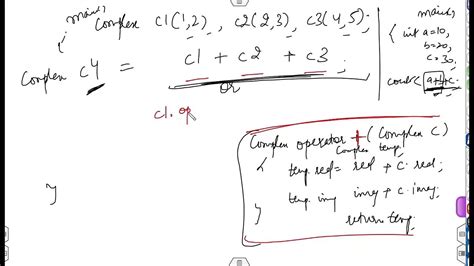 main()
{
Complex c1(1,2), c2(2,3), c3(4,5);
Complex c4 = c1 + c2 + c3;
or
c1. op
}
main()
{ int a=10,
b=20,
c=30,
cout< a+b+c.
Complex operator + (Complex c)
{ Complex temp;
temp. real= real + c. real;
temp. img = img + c. img;
} return temp;